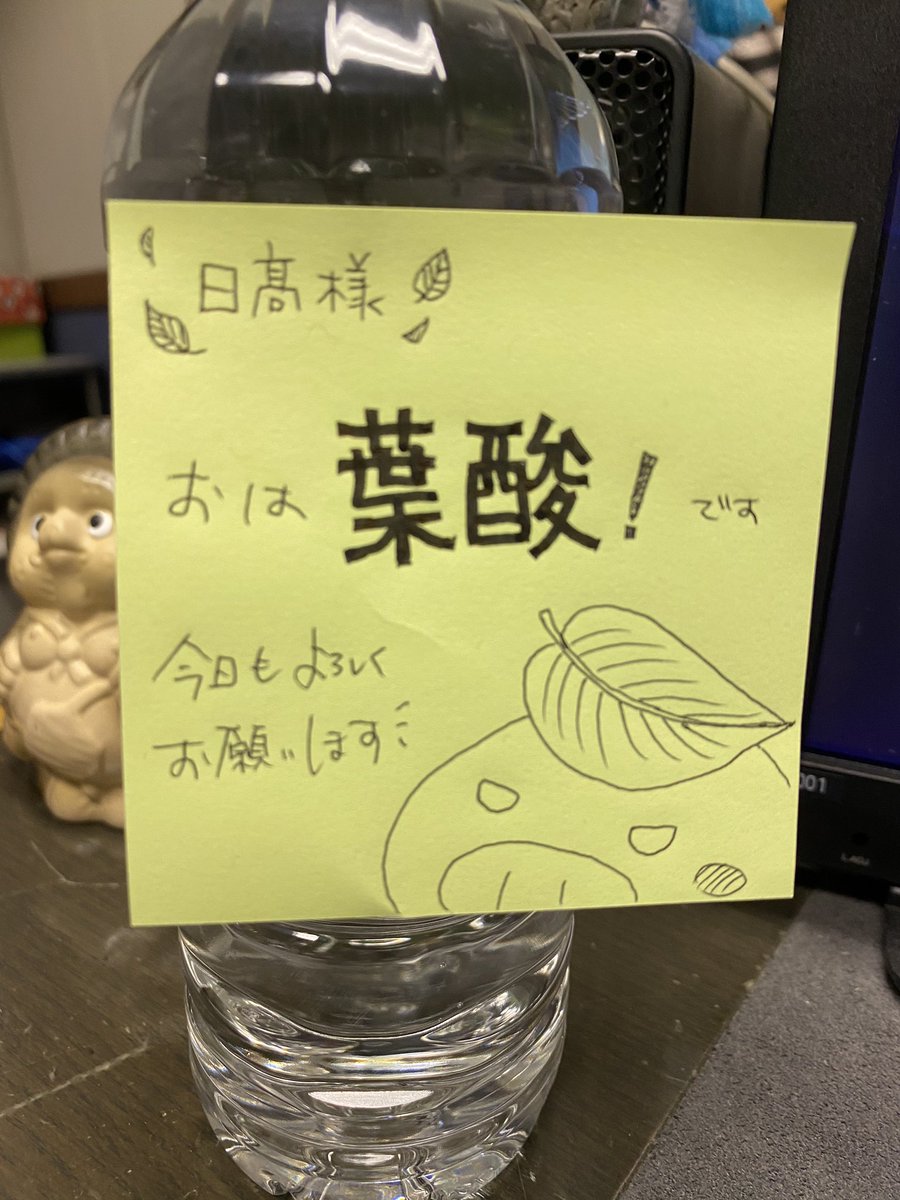 日髙様
おは葉酸!です
今日もよろしく
お願いします
001